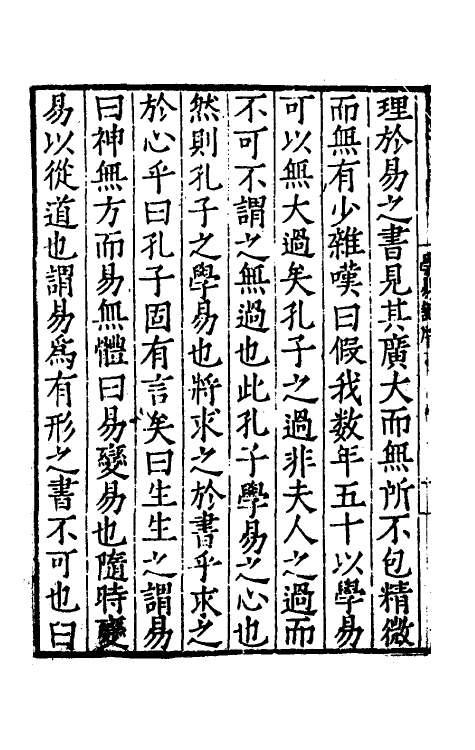 理於易之書見其廣大而無所不包精微
而無有少雜嘆曰假我数年五十以學易
可以無大過矣孔子之過非夫人之過而
不可不謂之無過也此孔子學易之心也
然則孔子之學易也將求之於書乎求之
於心乎曰孔子固有言矣曰生生之謂易
曰神無方而易無體曰易變易也隨時變
易以從道也謂易爲有形之書不可也曰